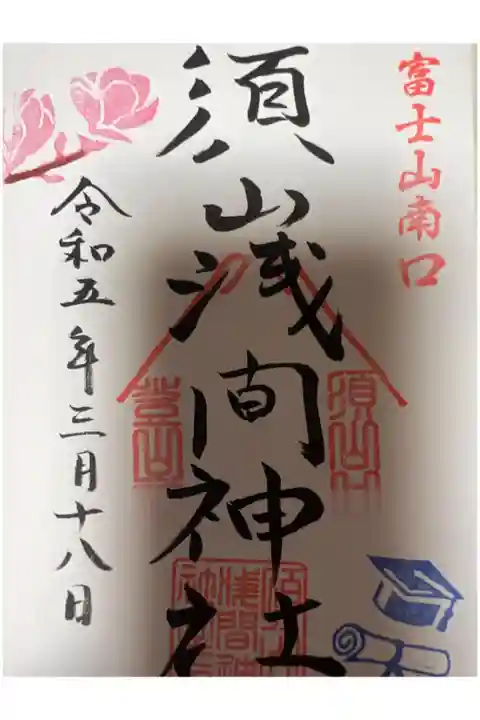 富士山南口
須山浅間神社
令和五年三月十八日
須山口
登山